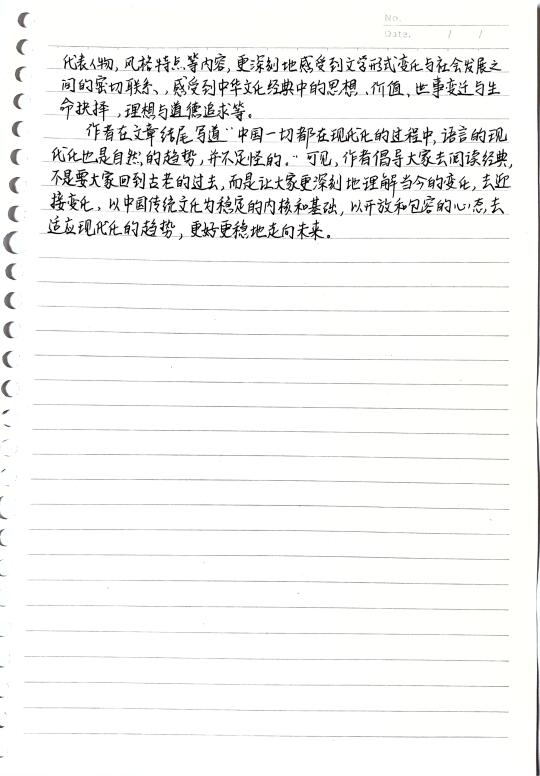 No.
Date. / /
代表人物，风格特点等内容，更深刻地感受到文学形式变化与社会发展之
间的密切联系、感受到中华文化经典中的思想、价值、世事变迁与生
命抉择，理想与道德追求等。
作者在文章结尾写道“中国一切都在现代化的过程中，语言的现
代化也是自然的趋势，并不足怪的。”可见，作者倡导大家去阅读经典，
不是要大家回到古老的过去，而是让大家更深刻地理解当今的变化，去迎
接变化，以中国传统文化为稳定的内核和基础，以开放和包容的心态去
适应现代化的趋势，更好更稳地走向未来。